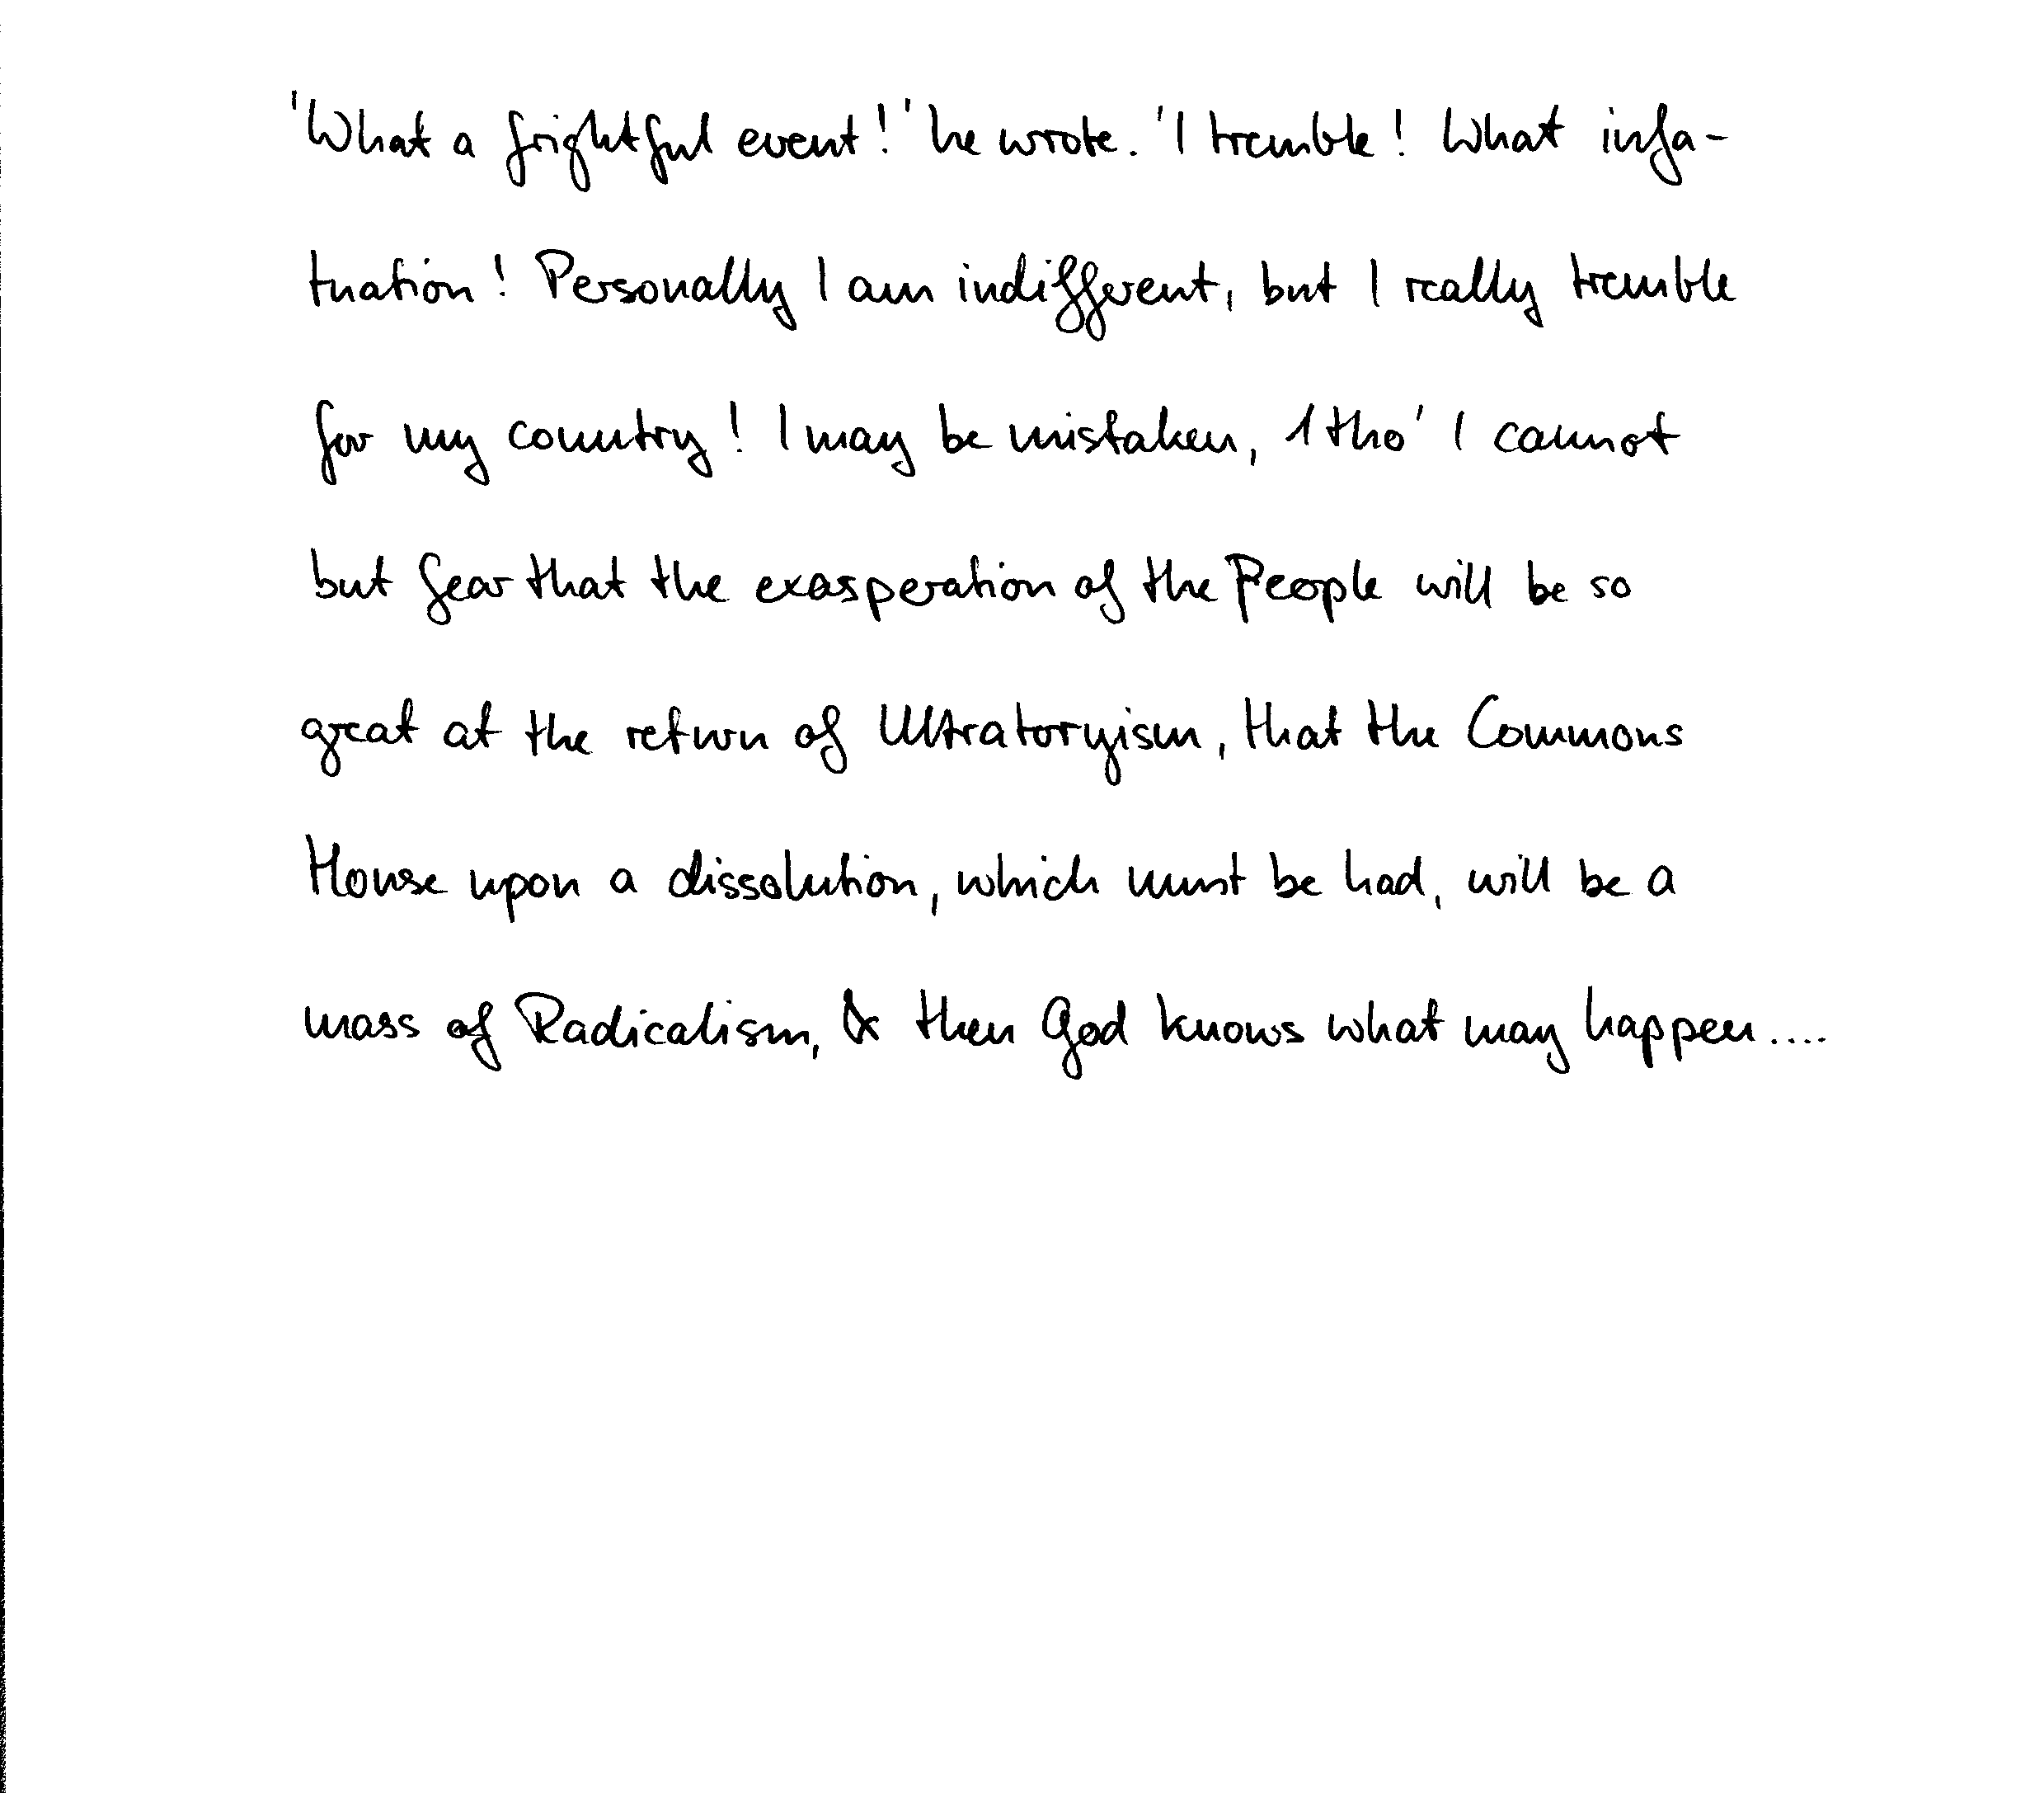 'What a frightful event!' he wrote. 'I tremble! What infa-
tuation! Personally I am indifferent, but I really tremble
for my country! I may be mistaken, 1 tho' I cannot
but fear that the exasperation of the People will be so
great at the return of Ultratoryism, that the Commons
House upon a dissolution, which must be had, will be a
mass of Radicalism, & then God knows what may happen....